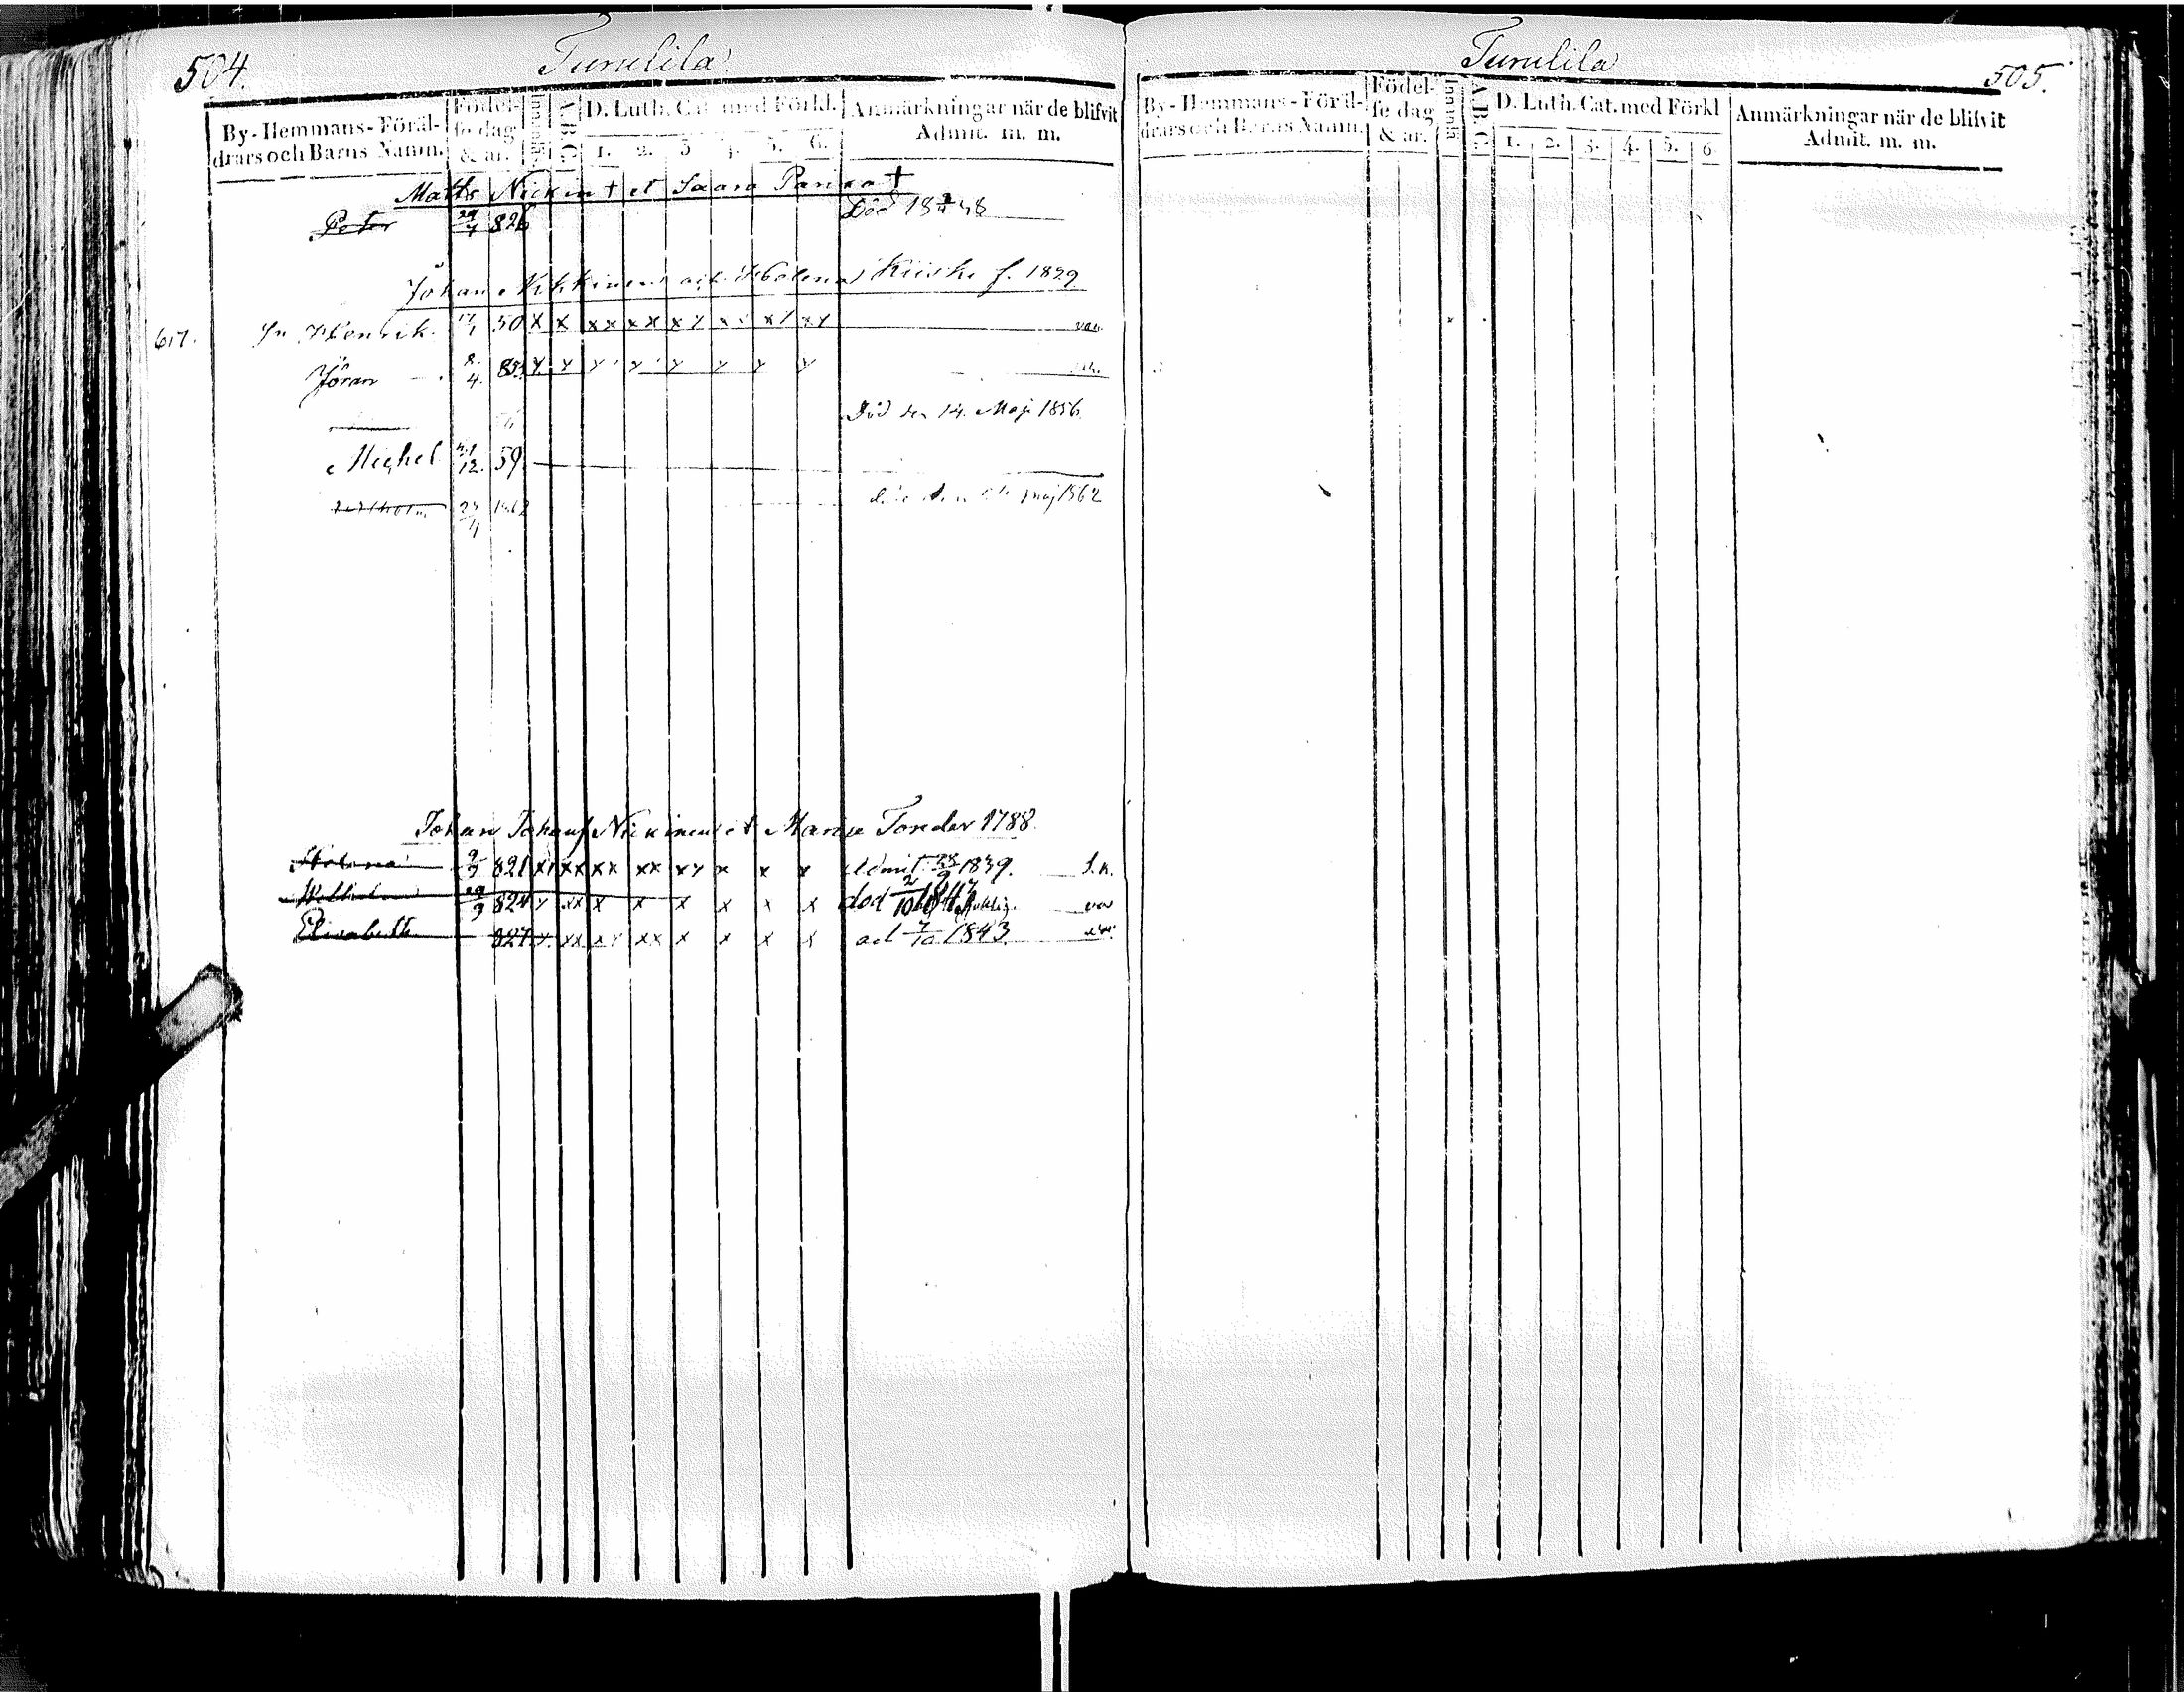 504.
Turulila
By-Hemmans-Föräl-
drars och Barns Namn.
Födel-
se dag
& år.
Innanlä
A.B.C.
D. Luth. Cat. med Förkl.
1. 2. 3 4. 5. 6.
Anmärkningar när de blifvit
Admit. m. m.
Matts Nickin † et Saara Pan †
Peter 29/7 826 Död 18 48
Johan Nikkinen och Helena Kiiski f. 1829
617. Henrik 17/1 50 x x xx xx x y xx x/ xy
Jöran 8/4. 853 y y y y y y y y
Död den 14. Maji 1856.
Michel 12. 59
23/4 1862 maj 1862
Johan Johansf Nickinen et Maria Tonder 1788.
Helena 9/3 821 xx xx xx xx xy x x x Admit. 28/9 1839. S.k.
Wilhelm 29/3 824 y xx x x x x x x död 2/10
Elisabeth 827 y. xx xy xx x x x x ad 7/10 1843
Turulila
505.
By-Hemmans-Föräl-
drars och Barns Namn.
Födel-
se dag
& år.
Innanlä
A.B.C.
D. Luth. Cat. med Förkl
1. 2. 3. 4. 5. 6
Anmärkningar när de blifvit
Admit. m. m.